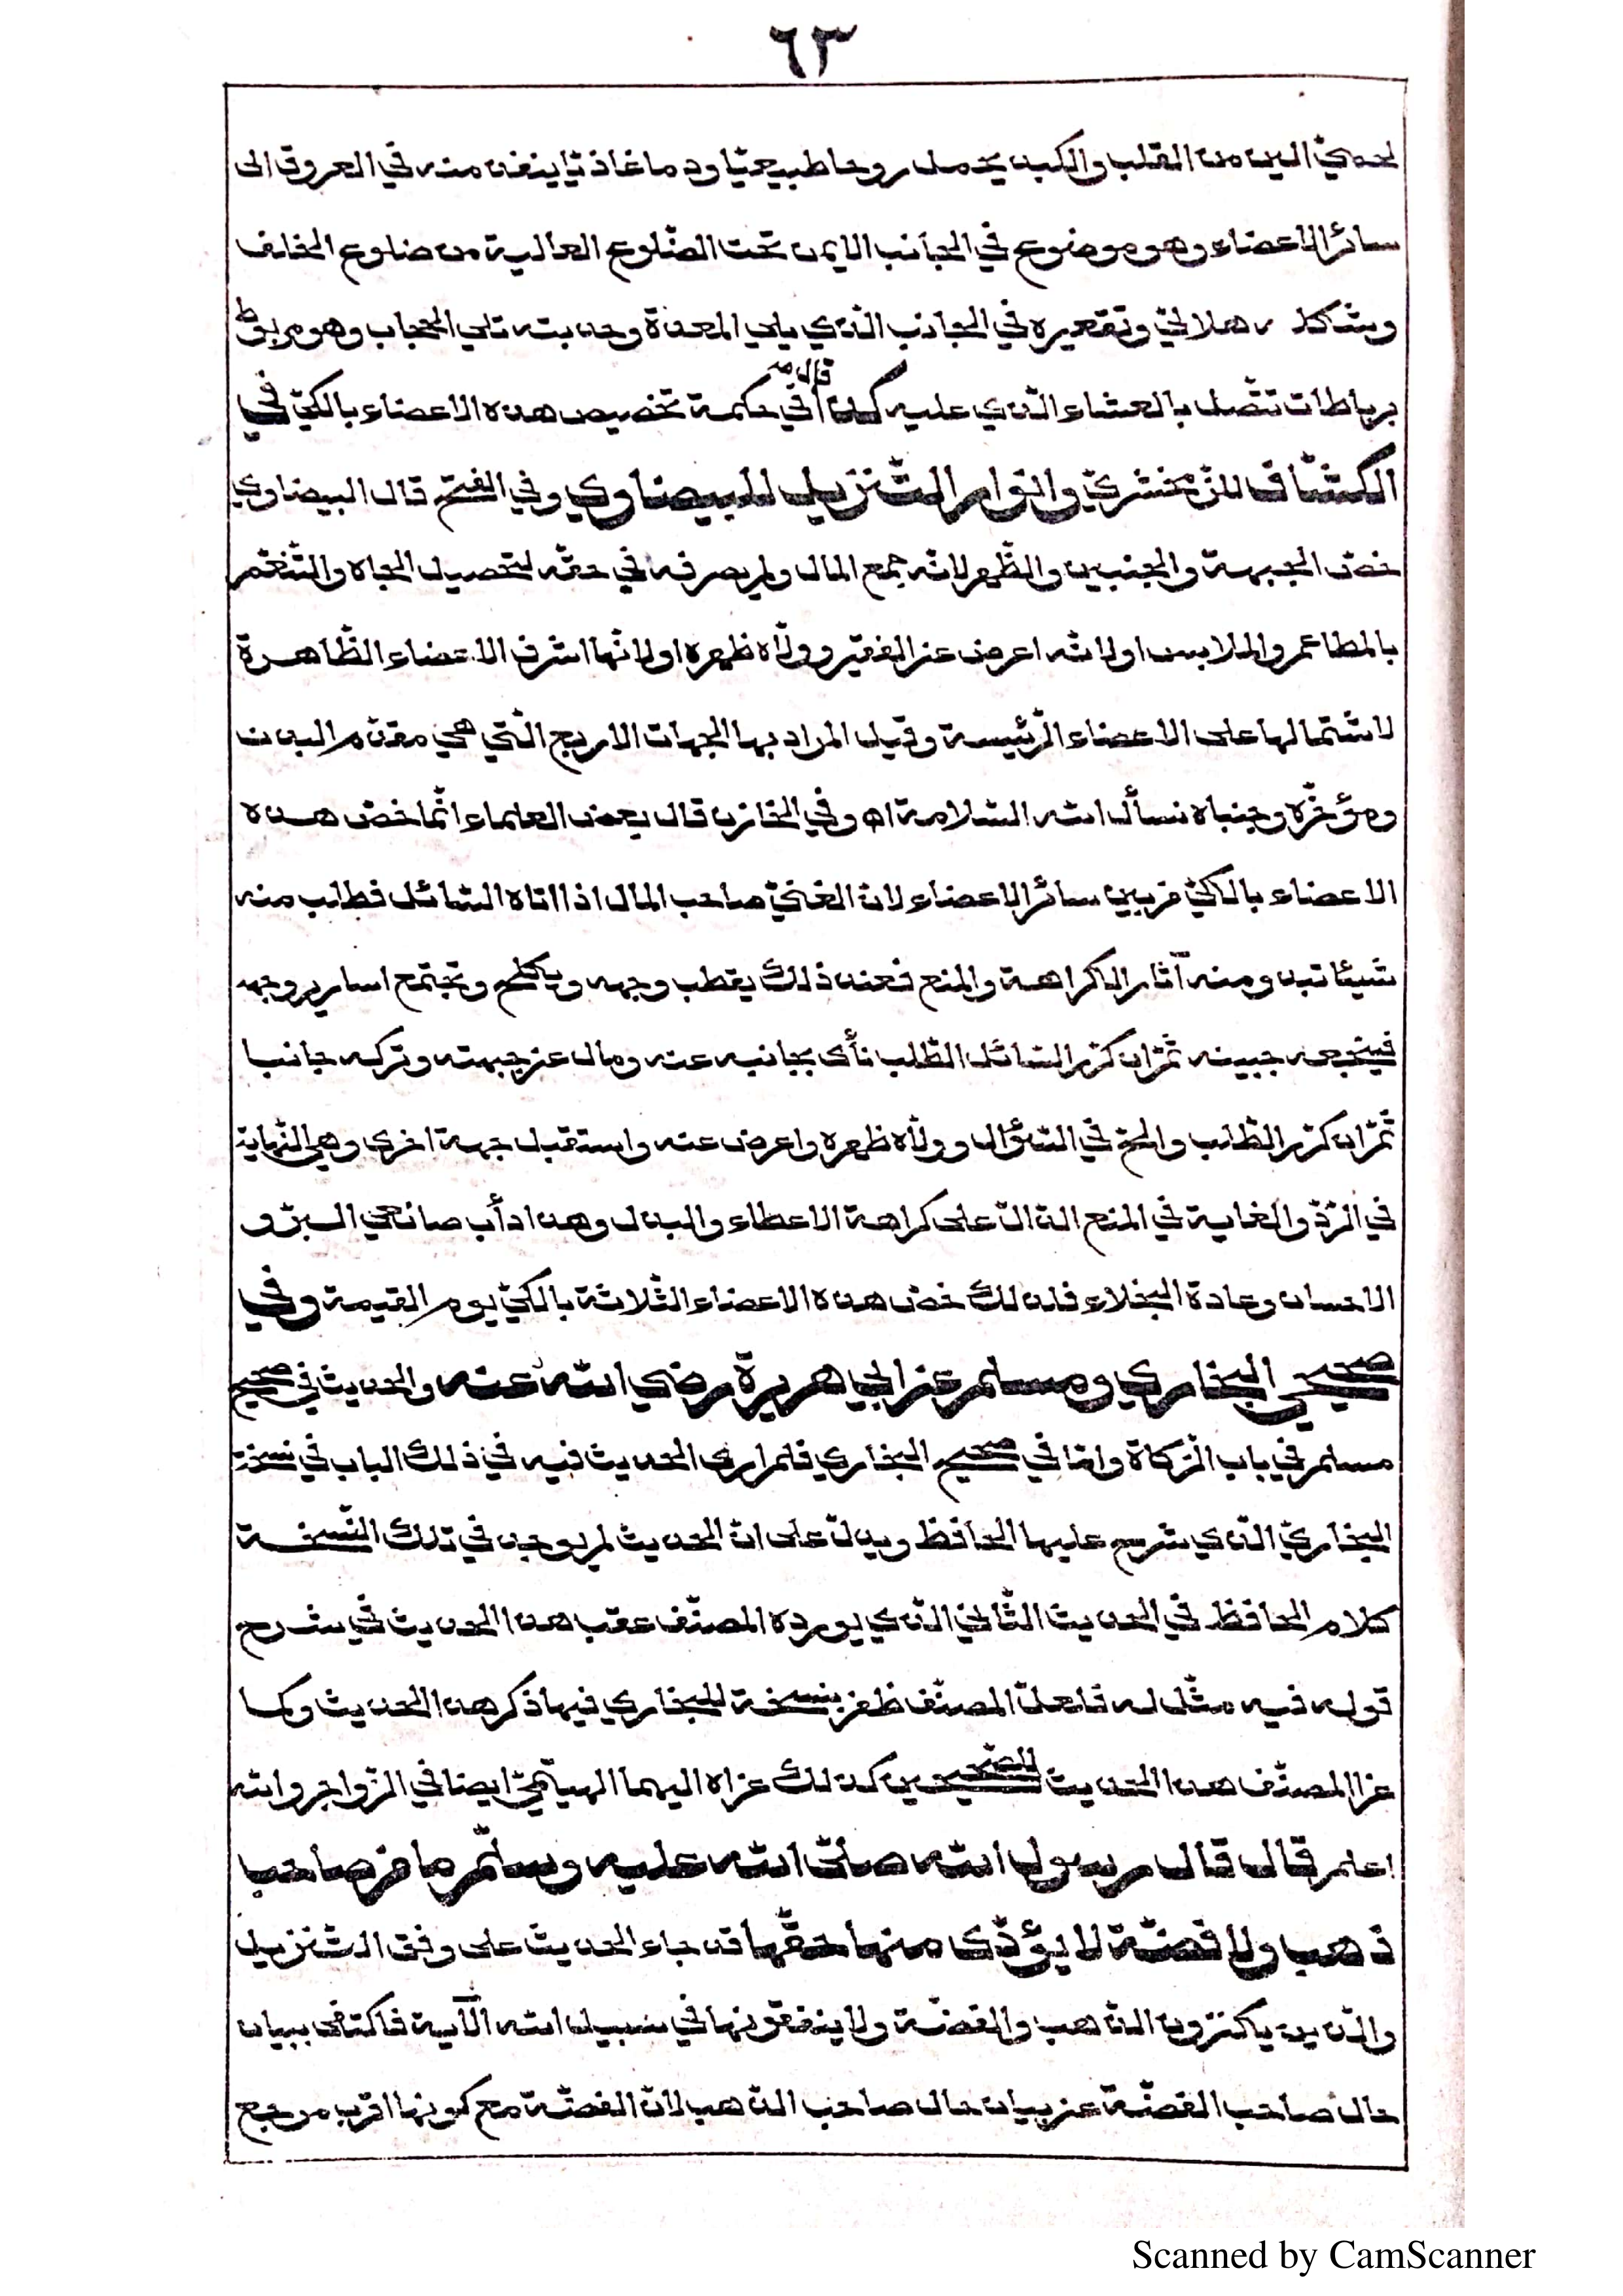 ٦٣
لحمي الين من القلب والكبد يحمل روحا طبيعيّا ودما غاذيّا ينفذ منه في العروق الى
سائر الاعضاء وهو موضوع في الجانب الايمن تحت الضّلوع العالية من ضلوع الخلف
وشكله هلاليّ وتقعيره في الجانب الّذي يلي المعدة وحدبته تلي الحجاب وهو مربوط
برباطات تتّصل بالغشاء الّذي عليه كذا قال في حكمة تخصيص هذه الاعضاء بالكيّ في
الكشّاف للزّمخشريّ وانوار التّنزيل للبيضاوي وفي الفتح قال البيضاوي
خصّ الجبهة والجنبين والظّهر لانّه جمع المال ولم يصرفه في حقّه لتحصيل الجاه والتّنعّم
بالمطاعم والملابس او لانّه اعرض عن الفقير وولّاه ظهره او لانّها اشرف الاعضاء الظّاهرة
لاشتمالها على الاعضاء الرّئيسة وقيل المراد بها الجهات الاربع الّتي هي مقدّم البدن
ومؤخّره وجنباه نسأل الله السّلامة اه وفي الخازن قال بعض العلماء انّما خصّ هذه
الاعضاء بالكيّ من بين سائر الاعضاء لانّ الغنيّ صاحب المال اذا اتاه السّائل فطلب منه
شيئا تبدو منه آثار الكراهة والمنع فعند ذلك يقطب وجهه ويكلح وتجتمع اسارير وجهه
فيتجعد جبينه ثمّ ان كرّر السّائل الطّلب نأى بجانبه عنه ومال عن جبهته وتركه جانبا
ثمّ ان كرّر الطّلب والحّ في السّؤال وولّاه ظهره واعرض عنه واستقبل جهة اخرى وهي النّهاية
في الرّدّ والغاية في المنع الدّالّ على كراهة الاعطاء والبذل وهذا دأب مانعي البرّ و
الاحسان وعادة البخلاء فلذلك خصّ هذه الاعضاء الثّلاثة بالكيّ يوم القيمة وفي
صحيحي البخاري ومسلم عن ابي هريرة رضي الله عنه والحديث في صحيح
مسلم في باب الزّكاة وامّا في صحيح البخاري فلم ار الحديث فيه في ذلك الباب في نسخة
البخاريّ الّذي شرح عليها الحافظ ويدلّ على انّ الحديث لم يوجد في تلك النّسخة
كلام الحافظ في الحديث الثّاني الّذي يورده المصنّف عقب هذا الحديث في شرح
قوله فيه مثّل له فلعلّ المصنّف ظفر بنسخة للبخاري فيها ذكر هذا الحديث وكما
عزا المصنّف هذا الحديث للصّحيحين كذلك عزاه اليهما الهيتميّ ايضا في الزّواجر والله
اعلم قال قال رسول الله صلّى الله عليه وسلّم ما من صاحب
ذهب ولا فضّة لا يؤدّى منها حقّها قد جاء الحديث على وفق التّنزيل
والّذين يكنزون الذّهب والفضّة ولا ينفقونها في سبيل الله الآية فاكتفى ببيان
حال صاحب الفضّة عن بيان حال صاحب الذّهب لانّ الفضّة مع كونها اقرب مرجع
Scanned by CamScanner